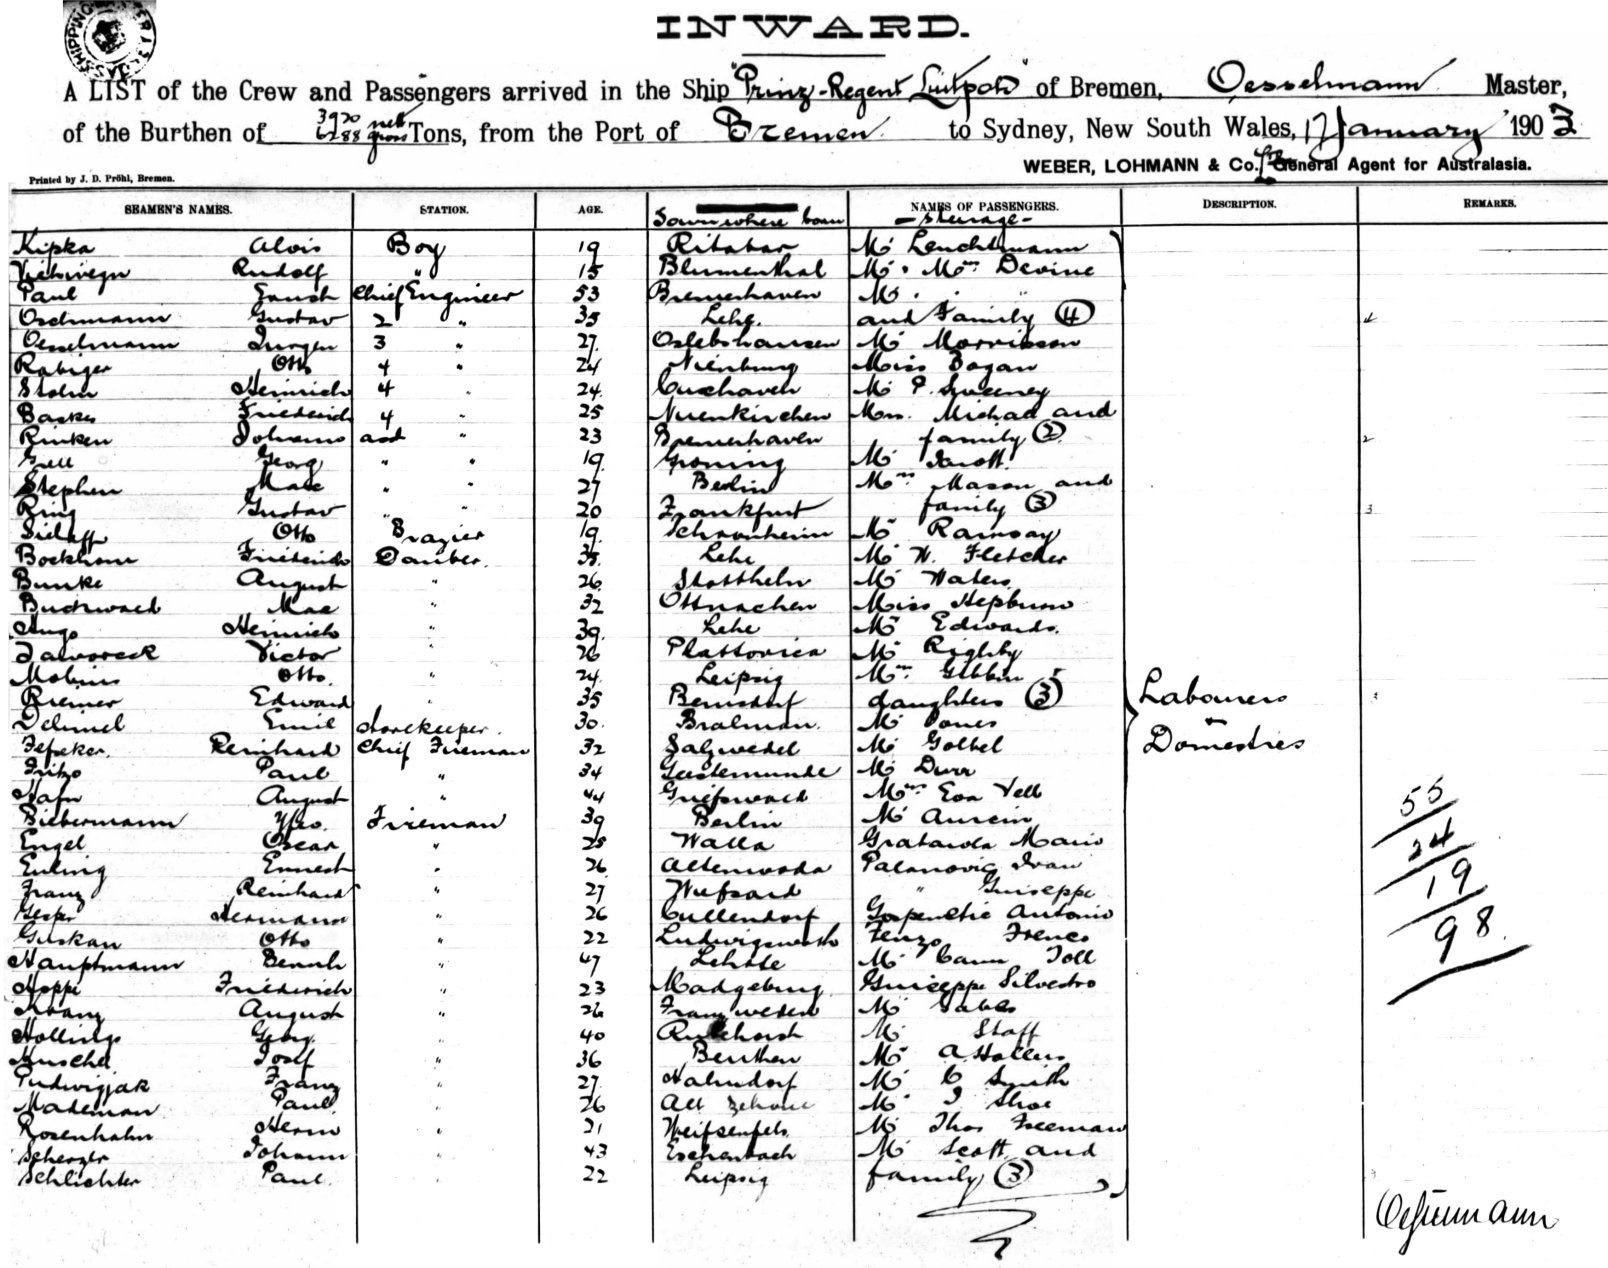 SHIPPING
INWARD.
A LIST of the Crew and Passengers arrived in the Ship "Prinz-Regent Luitpold" of Bremen, Oesselmann Master,
of the Burthen of 3920 nett 6288 gross Tons, from the Port of Bremen to Sydney, New South Wales, 17 January 1903
WEBER, LOHMANN & Co. General Agent for Australasia.
Printed by J. D. Pröhl, Bremen.
SEAMEN'S NAMES. STATION. AGE. Town where born NAMES OF PASSENGERS. DESCRIPTION. REMARKS.
- Steerage -
Kipka Alois Boy 19 Ratibor Mr Leuchtmann
Rudolf " 15 Blumenthal Mr. Mrs. Devine
Paul Ernst Chief Engineer 53 Bremerhaven Mr. "
Oschmann Gustav 2 " 35 Lehe. and Family (4) 4
Oesselmann Jurgen 3 " 27 Oslebshausen Mr Morrisson
Rabiger Otto 4 " 24 Nienburg Miss Bogan
Stolm Heinrich 4 " 24 Cuxhaven Mr P. Sweeney
Basker Friederich 4 " 25 Nuenkirchen Mrs. Michael and
Rinken Johanns asst " 23 Bremerhaven family (2) 2
Grell Georg " " 19 Groning Mr
Stephen Max " " 27 Berlin Mrs. Mason and
Ring Gustav " " 20 Frankfurt family (3) 3
Otto Brazier 19 Mr Ramsay
Friederich 35 Lehe Mr W. Fletcher
Bunke August " 26 Stottheln Mr Waters
Buchwald Max " 32 Ottnachen Miss Hepburn
Hugo Heinrich " 39 Lehe Mr Edwards.
Jaworeck Victor " 26 Mr Rigby
Mobius Otto " 24 Leipzig Mrs. Gibbin
Riemer Edward 35 Bernsdorf daughters (3) 3 Labourers
Emil Storekeeper 30 Mr Jones
Reinhard Chief Fireman 32 Salzwedel Mr Golbel Domestics
Fritzo Paul " 34 Geestemunde Mr Durr
Hafn August " 44 Greifswald Mrs. Eva Vell 55
Biebermann Fireman 39 Berlin Mr Aurein
Engel Oscar " 25 Walla Gratarola Mario 24
Euling Ernest " 26 Altenwoda Palanovic Ivan
Franz Reinhard " 27 " Guiseppe 19
Hermann " 26 Cullendorf Gospenetic Antonio
Guskan Otto " 22 Ludwigsworth Fenzo 98.
Hauptmann " 47 Mr Toll
Hoppe Friederich " 23 Madgeburg Guiseppe Silvestro
August " 26 Mr
Hollings Georg " 40 Mr Staff
Josef " 36 Beuthen Mr A Hollers
Franz " 27 Hahndorf Mr C Smith
Mademan Paul " 26 Alt Mr J Shoe
Rosenhahn Herm " 21 Weifsenfels Mr Thos Freeman
Scherzer Johann " 43 Eschenbach Mr Scott and
Schlichter Paul " 22 Leipzig family (3) 3